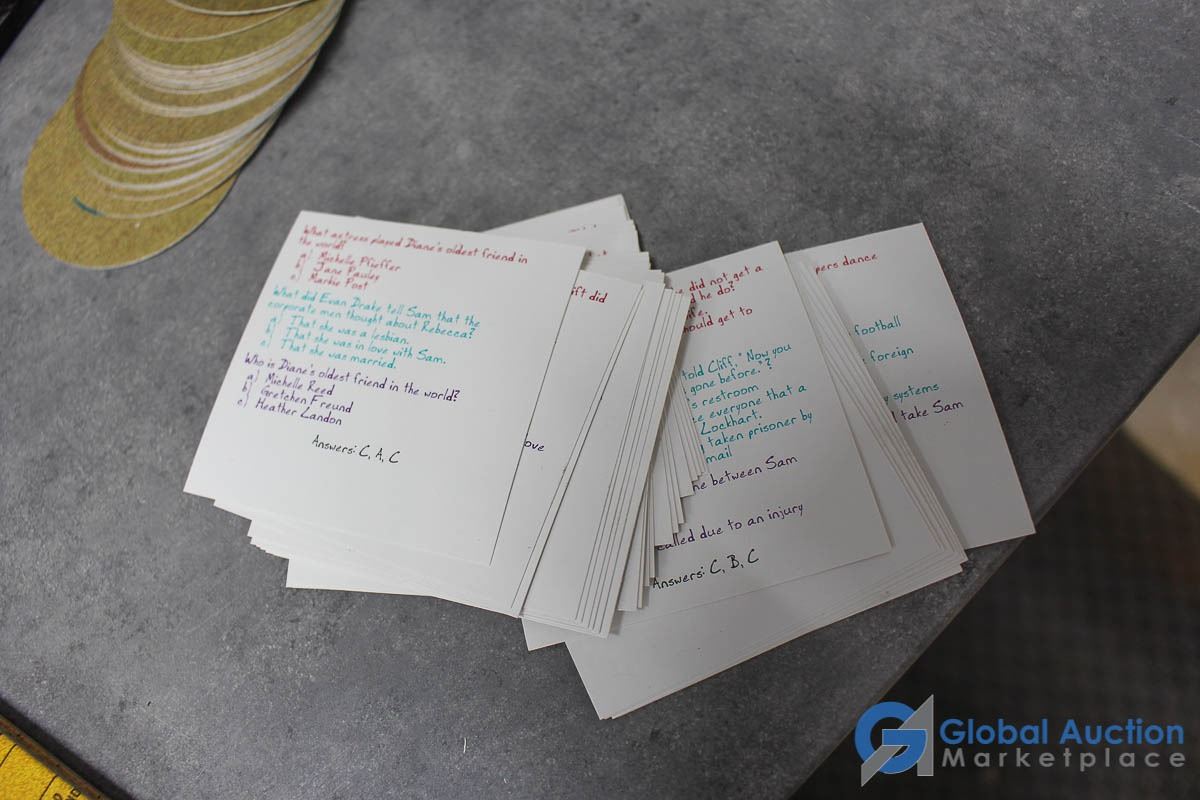 What actress played Diane's oldest friend in
the world?
a) Michelle Pfieffer
b) Jane Pauley
c) Markie Post
What did Evan Drake tell Sam that the
corporate men thought about Rebecca?
a) That she was a lesbian.
b) That she was in love with Sam.
c) That she was married.
Who is Diane's oldest friend in the world?
a) Michelle Reed
b) Gretchen Freund
c) Heather Landon
Answers: C, A, C
did
ove
did not get a
he do?
hould get to
told Cliff, "Now you
gone before."?
s restroom
e everyone that a
Lockhart.
taken prisoner by
mail
ne between Sam
called due to an injury
Answers: C, B, C
pers dance
football
foreign
systems
take Sam
Global Auction
Marketplace